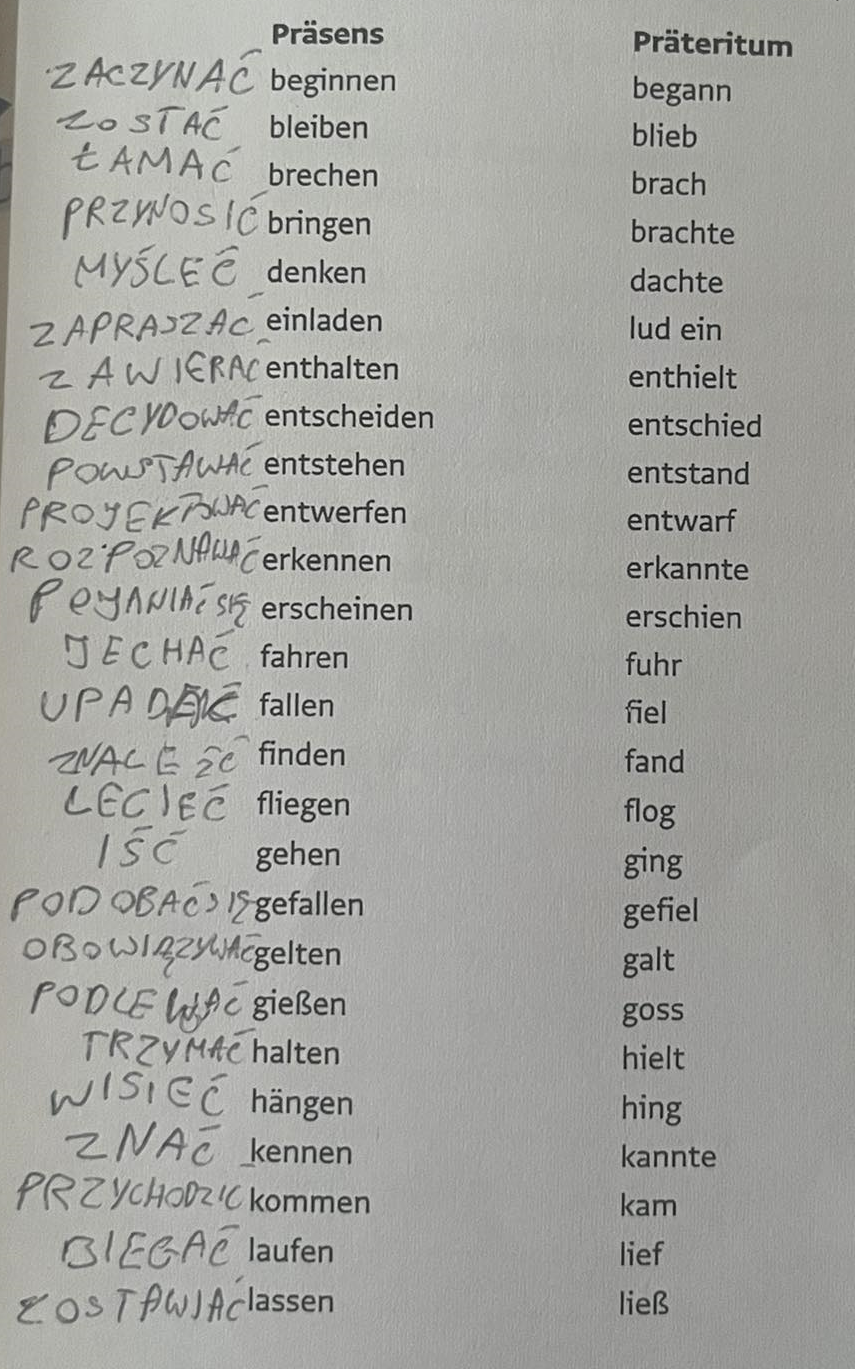 Präsens Präteritum
ZACZYNAĆ beginnen begann
ZOSTAĆ bleiben blieb
ŁAMAĆ brechen brach
PRZYNOSIĆ bringen brachte
MYŚLEĆ denken dachte
ZAPRASZAĆ einladen lud ein
ZAWIERAĆ enthalten enthielt
DECYDOWAĆ entscheiden entschied
POWSTAWAĆ entstehen entstand
PROJEKTOWAĆ entwerfen entwarf
ROZPOZNAWAĆ erkennen erkannte
POJAWIAĆ SIĘ erscheinen erschien
JECHAĆ fahren fuhr
fallen fiel
ZNALEŹĆ finden fand
LECIEĆ fliegen flog
IŚĆ gehen ging
PODOBAĆ SIĘ gefallen gefiel
OBOWIĄZYWAĆ gelten galt
PODLEWAĆ gießen goss
TRZYMAĆ halten hielt
WISIEĆ hängen hing
ZNAĆ kennen kannte
PRZYCHODZIC kommen kam
BIEGAĆ laufen lief
ZOSTAWIAĆ lassen ließ